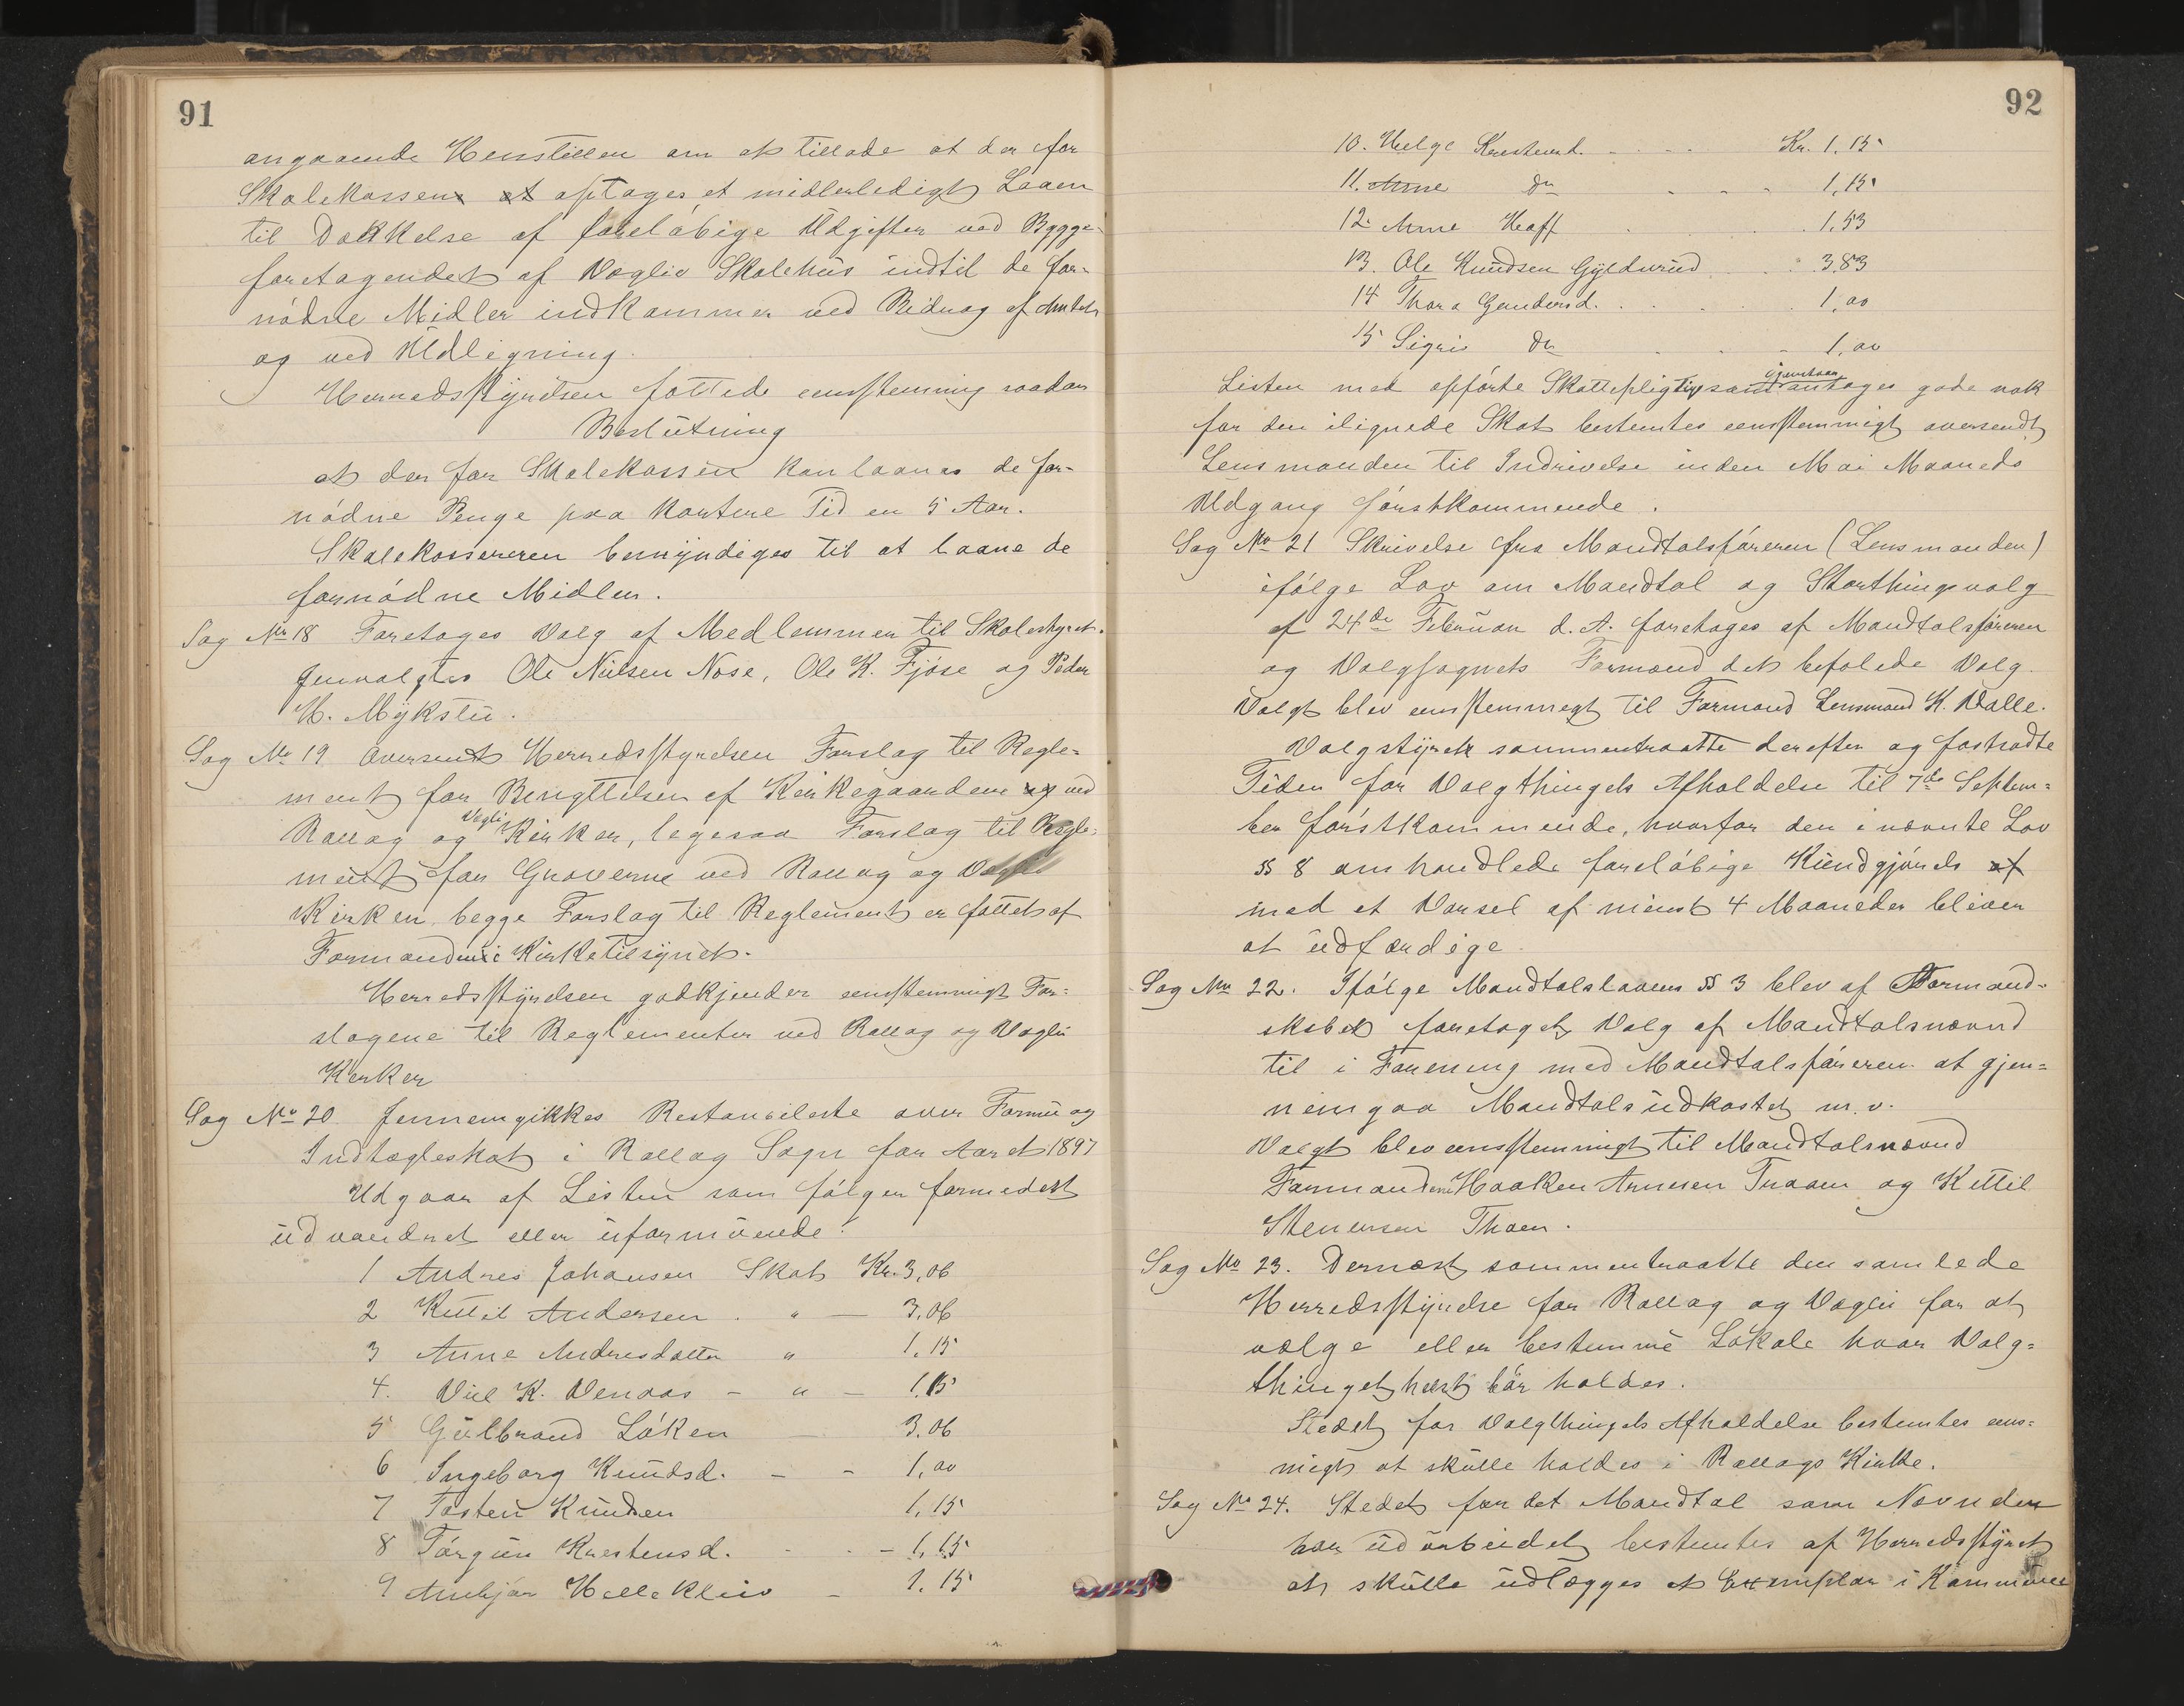 91
angaaende Henstillen om at tillade at der for
Skolekassen at optages et midlerledigt Laaen
til Dækkelse af foreløbige Udgifter ved Bygge-
foretagendet af Væglid Skolehus indtil de for-
nødne Midler indkommer ved Bidrag af Amtet
og ved Udligning.
Herredsstyrelsen fattede eensstemmig saadan
Beslutning
at der for Skolekassen kan laanes de for-
nødne Penge paa kortere Tid en 5 Aar.
Skolekassereren bemyndiges til at laane de
fornødne Midler.
Sag No 18 Foretages Valg af Medlemmer til Skolestyret.
Jenvalgtes Ole Nilsen Nøse, Ole K. Fjøse og Peder
H. Mykstu.
Sag No 19 Oversent Herredsstyrelsen Forslag til Regle-
ment for Benyttelsen af Kirkegaardene og ved
Rollag og Vegli Kirker, legesaa Forslag til Regle-
ment for Graverne ved Rollag og Vegli
Kirker, begge Forslag til Reglement er fattet af
Formanden i Kirketilsynet.
Herredsstyrelsen godkjender eensstemmigt For-
slagene til Reglementer ved Rollag og Væglii
Kerker
Sag No 20. Jennemgikkes Restanseleste over Formu og
Indtægteskat i Rollag Sogn for Aaret 1897
Udgaar af Listen som følger formedest
udvandret eller uformuende:
1 Andres Johansen Skat Kr. 3,06
2 Kittil Andersen . " — 3,06
3 Anne Andresdatter " 1,15
4. Viel K. Venaas – " – 1,15
5 Gulbrand Løken 3.06
6 Ingeborg Knudsd. – – 1,00
7 Tosten Knudsen 1,15
8 Torgun Kirstensd. - - – 1,15
9 Anbjør Helle Kleiv – 1.15
92
10. Helge Kirstensd. - - - Kr. 1,15
11. Arne do - - - 1,15
12. Arne Hoff . . . 1,53
13. Ole Knudsen Gyldurud . . 3,83
14 Thora Gundersd. . . . 1,00
15 Sigri do . . - 1,00
Listen med opførte Skattepligtige som igjenstaar antages gode nok
for den ilignede Skat bestemtes eensstemmigt oversendt
Lensmanden til Indrivelse inden Mai Maaneds
Udgang førstkommende.
Sag No 21 Skrivelse fra Mandtalsføreren (Lensmanden)
ifølge Lov om Mandtal og Storthingsvalg
af 24de Februar d. A. foretages af Mandtalsføreren
og Valgsognets Formænd det befalede Valg.
Valgt blev eensstemmegt til Formand Lensmand K. Valle.
Valgstyret sammentraatte derefter og fastsadte
Tiden for Valgthingets Afholdelse til 7de Septem-
ber førstkommende, hvorfor den i nævnte Lov
§§ 8 omhandlede foreløbige Kundgjørels af
med et Varsel af minst 4 Maaneder bliver
at udfærdige.
Sag No 22. Ifølge Mandtalslovens §§ 3 blev af Formand-
skabet foretaget Valg af Mandtalsnævnd
til i Forening med Mandtalsføreren at gjen-
nemgaa Mandtalsudkastet m. v.
Valgt blev eensstemmigt til Mandtalsnævnd
Formanden Haaken Arnesen Traaen og Kittil
Stenersen Thoen.
Sag No 23. Dernæst sammentraatte den samlede
Herredsstyrelse for Rollag og Væglii for at
vælge eller bestemme Lokale hvor Valg-
thinget helst bør holdes.
Stedet for Valgthingets Afholdelse bestemtes eens-
migt at skulle holdes i Rollags Kirke.
Sag No 24. Stedet for det Mandtal som Nævnden
har udarbeidet bestemtes af Herredsstyret
at skulle udlægges et Exemplar i Kommune